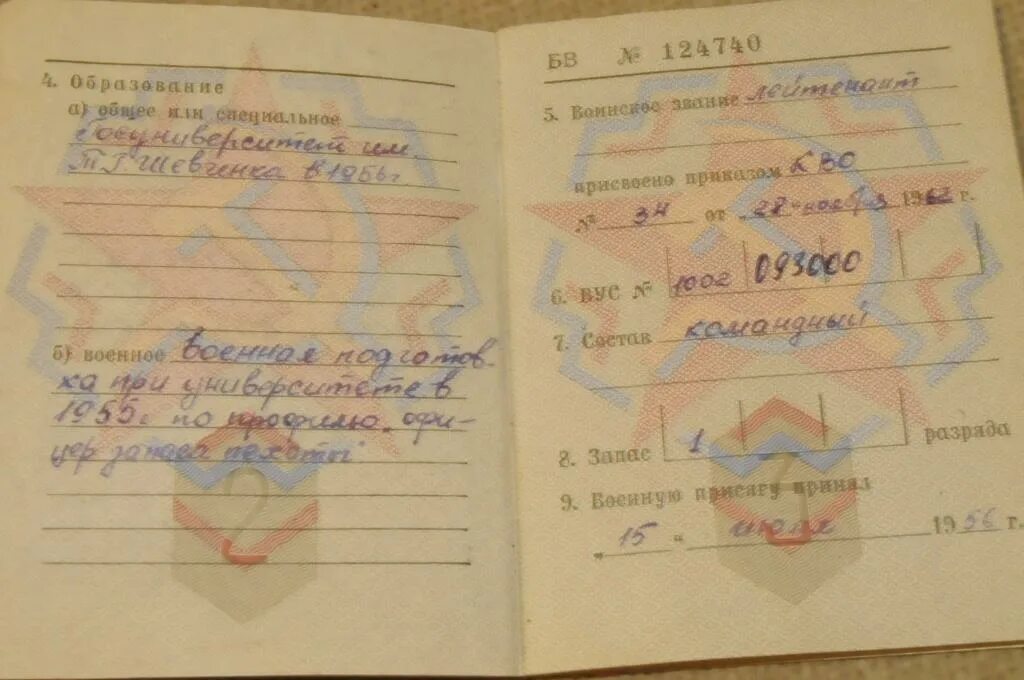 4. Образование
а) общее или специальное
Госуниверситет им.
Т Г Шевченка в 1956 г
б) военное Военная подготов-
ка при университете в
1955 г. по профилю офи-
цер запаса пехоты
2
БВ № 124740
5. Воинское звание лейтенант
присвоено приказом КВО
№ 34 от „28“ ноября 1962 г.
6. ВУС № 1002 093000
7. Состав командный
8. Запас 1 разряда
9. Военную присягу принял
„15“ июля 1956 г.
3